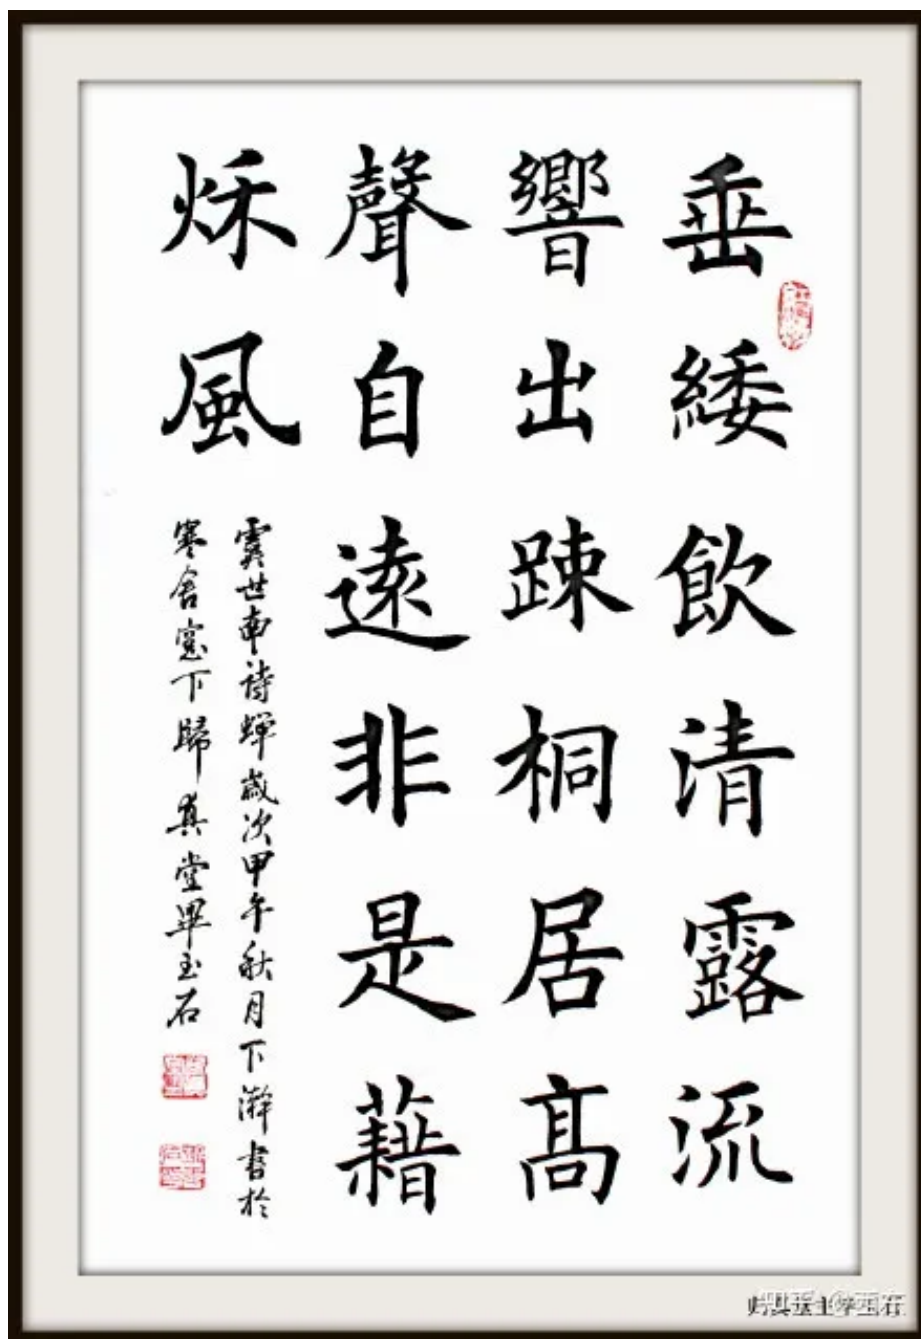 垂緌飲清露流
響出踈桐居高
聲自遠非是藉
烁風
虞世南诗蝉歲次甲午秋月下澣書於
寒舍窓下歸真堂畢玉石
归真堂主毕玉石